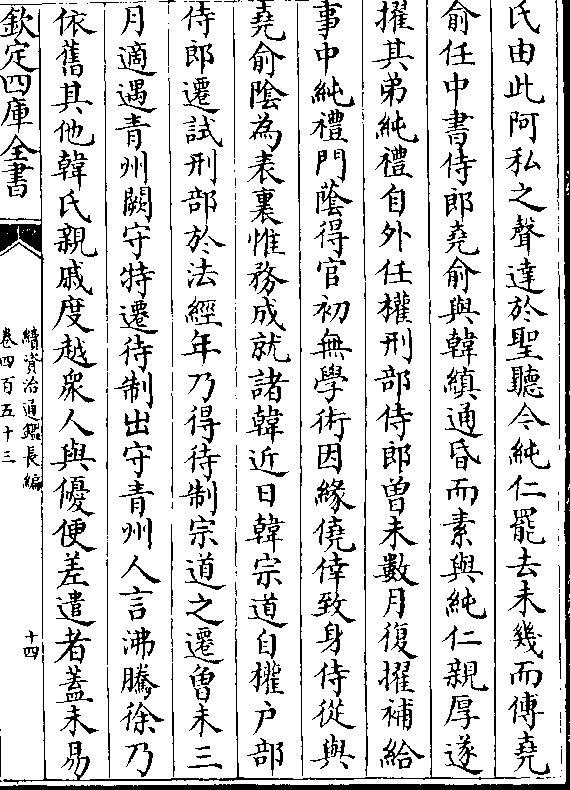 氏由此阿私之聲達於聖聽令純仁罷去未幾而傅堯
俞任中書侍郎堯俞與韓縝通昏而素與純仁親厚遂
擢其弟純禮自外任權刑部侍郎曽未數月復擢補給
事中純禮門蔭得官初無學術因緣僥倖致身侍從與
堯俞陰為表裏惟務成就諸韓近日韓宗道自權户部
侍郎遷試刑部於法經年乃得待制宗道之遷曽未三
月適遇青州闕守特遷待制出守青州人言沸騰徐乃
依舊其他韓氏親戚度越衆人與優便差遣者蓋未易
欽定四庫全書
續資治通鑑長編
卷四百五十三
十四